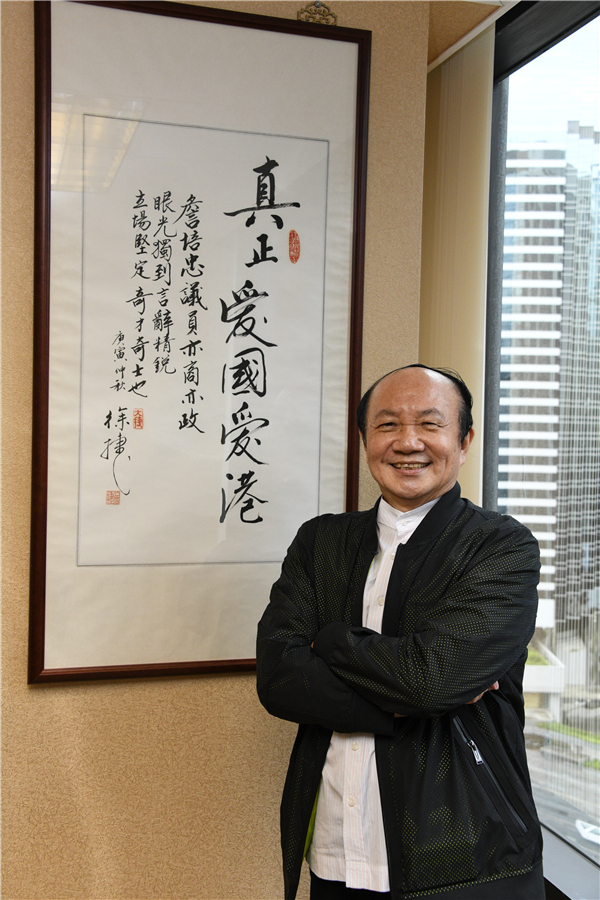 真正愛國愛港
詹培忠議員亦商亦政
眼光獨到言辭精銳
立場堅定 奇才奇士也
庚寅仲秋